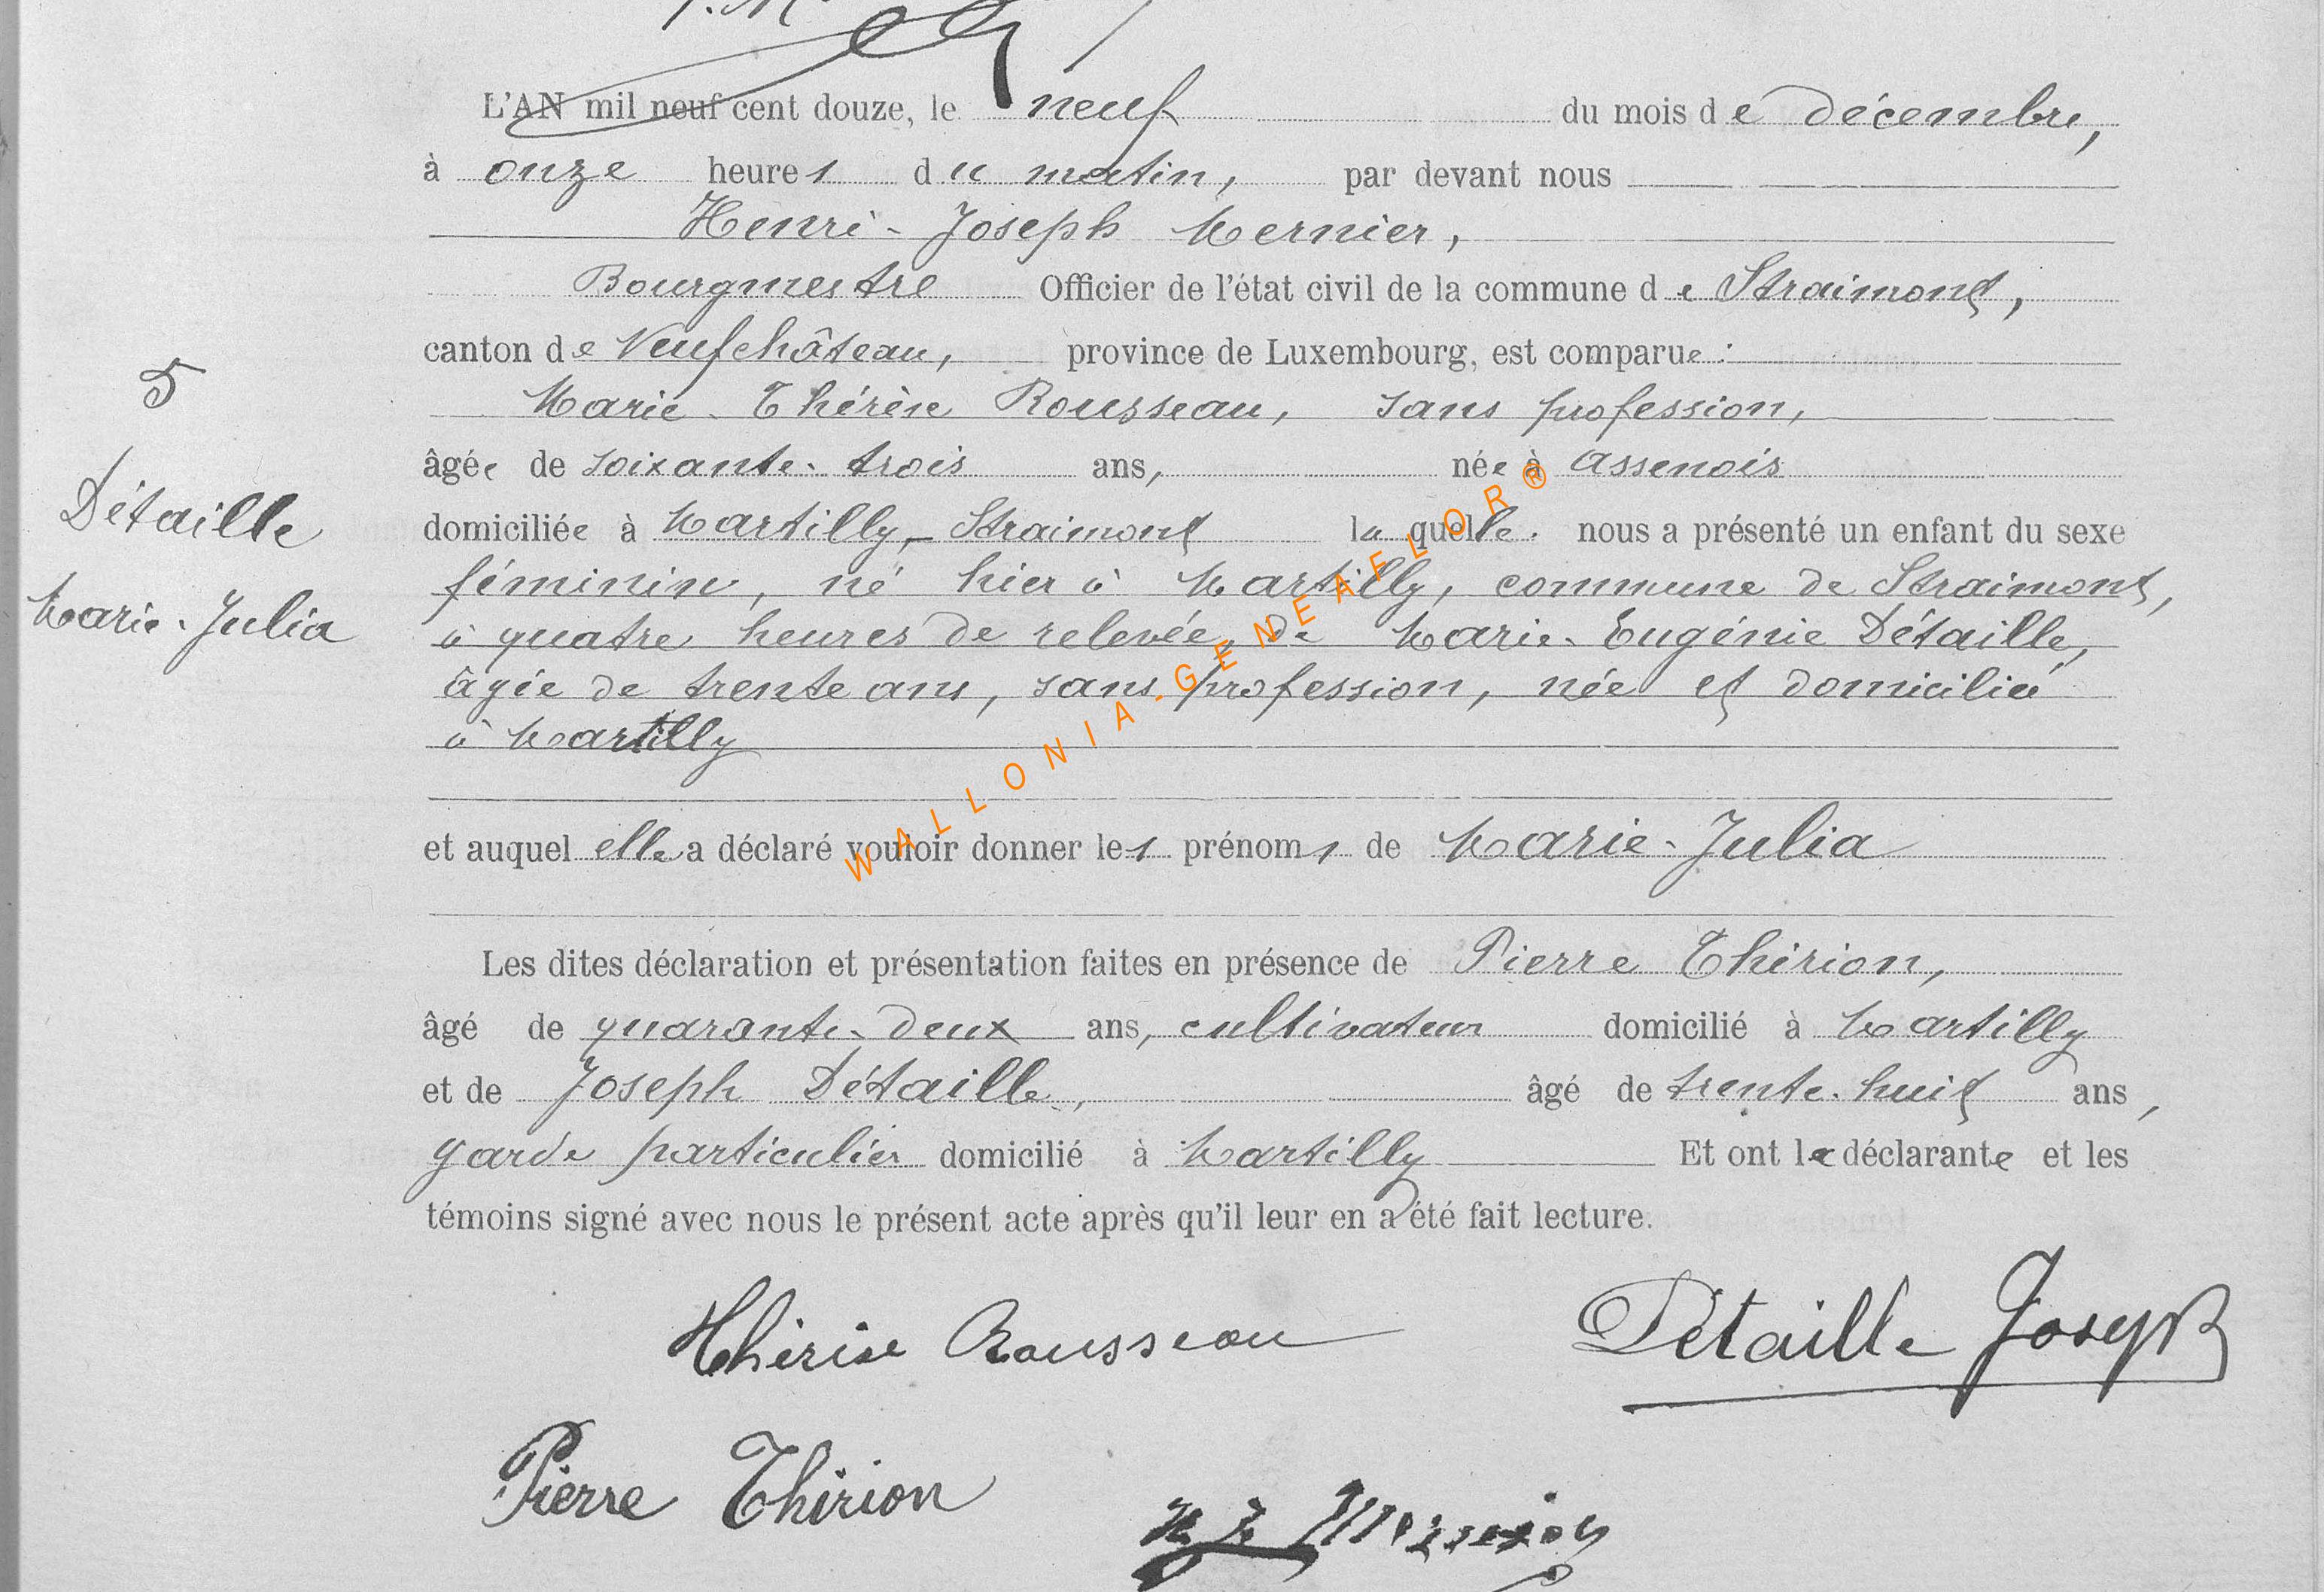 L'AN mil neuf cent douze, le neuf du mois de décembre,
à onze heures du matin, par devant nous
Henri-Joseph Mernier,
Bourgmestre Officier de l'état civil de la commune de Straimont,
canton de Neufchâteau, province de Luxembourg, est comparue :
5
Marie-Thérèse Rousseau, sans profession,
âgée de soixante-trois ans, née à Assenois
Détaille
domiciliée à Martilly-Straimont laquelle nous a présenté un enfant du sexe
féminin, né hier à Martilly, commune de Straimont,
Marie-Julia
à quatre heures de relevée, de Marie-Eugénie Détaille,
âgée de trente ans, sans profession, née et domiciliée
à Martilly
WALLONIA-GENEAFLOR®
et auquel elle a déclaré vouloir donner les prénoms de Marie-Julia
Les dites déclaration et présentation faites en présence de Pierre Thirion,
âgé de quarante-deux ans, cultivateur domicilié à Martilly
et de Joseph Détaille, âgé de trente-huit ans,
garde particulier domicilié à Martilly Et ont la déclarante et les
témoins signé avec nous le présent acte après qu'il leur en a été fait lecture.
Thérèse Rousseau Détaille Joseph
Pierre Thirion